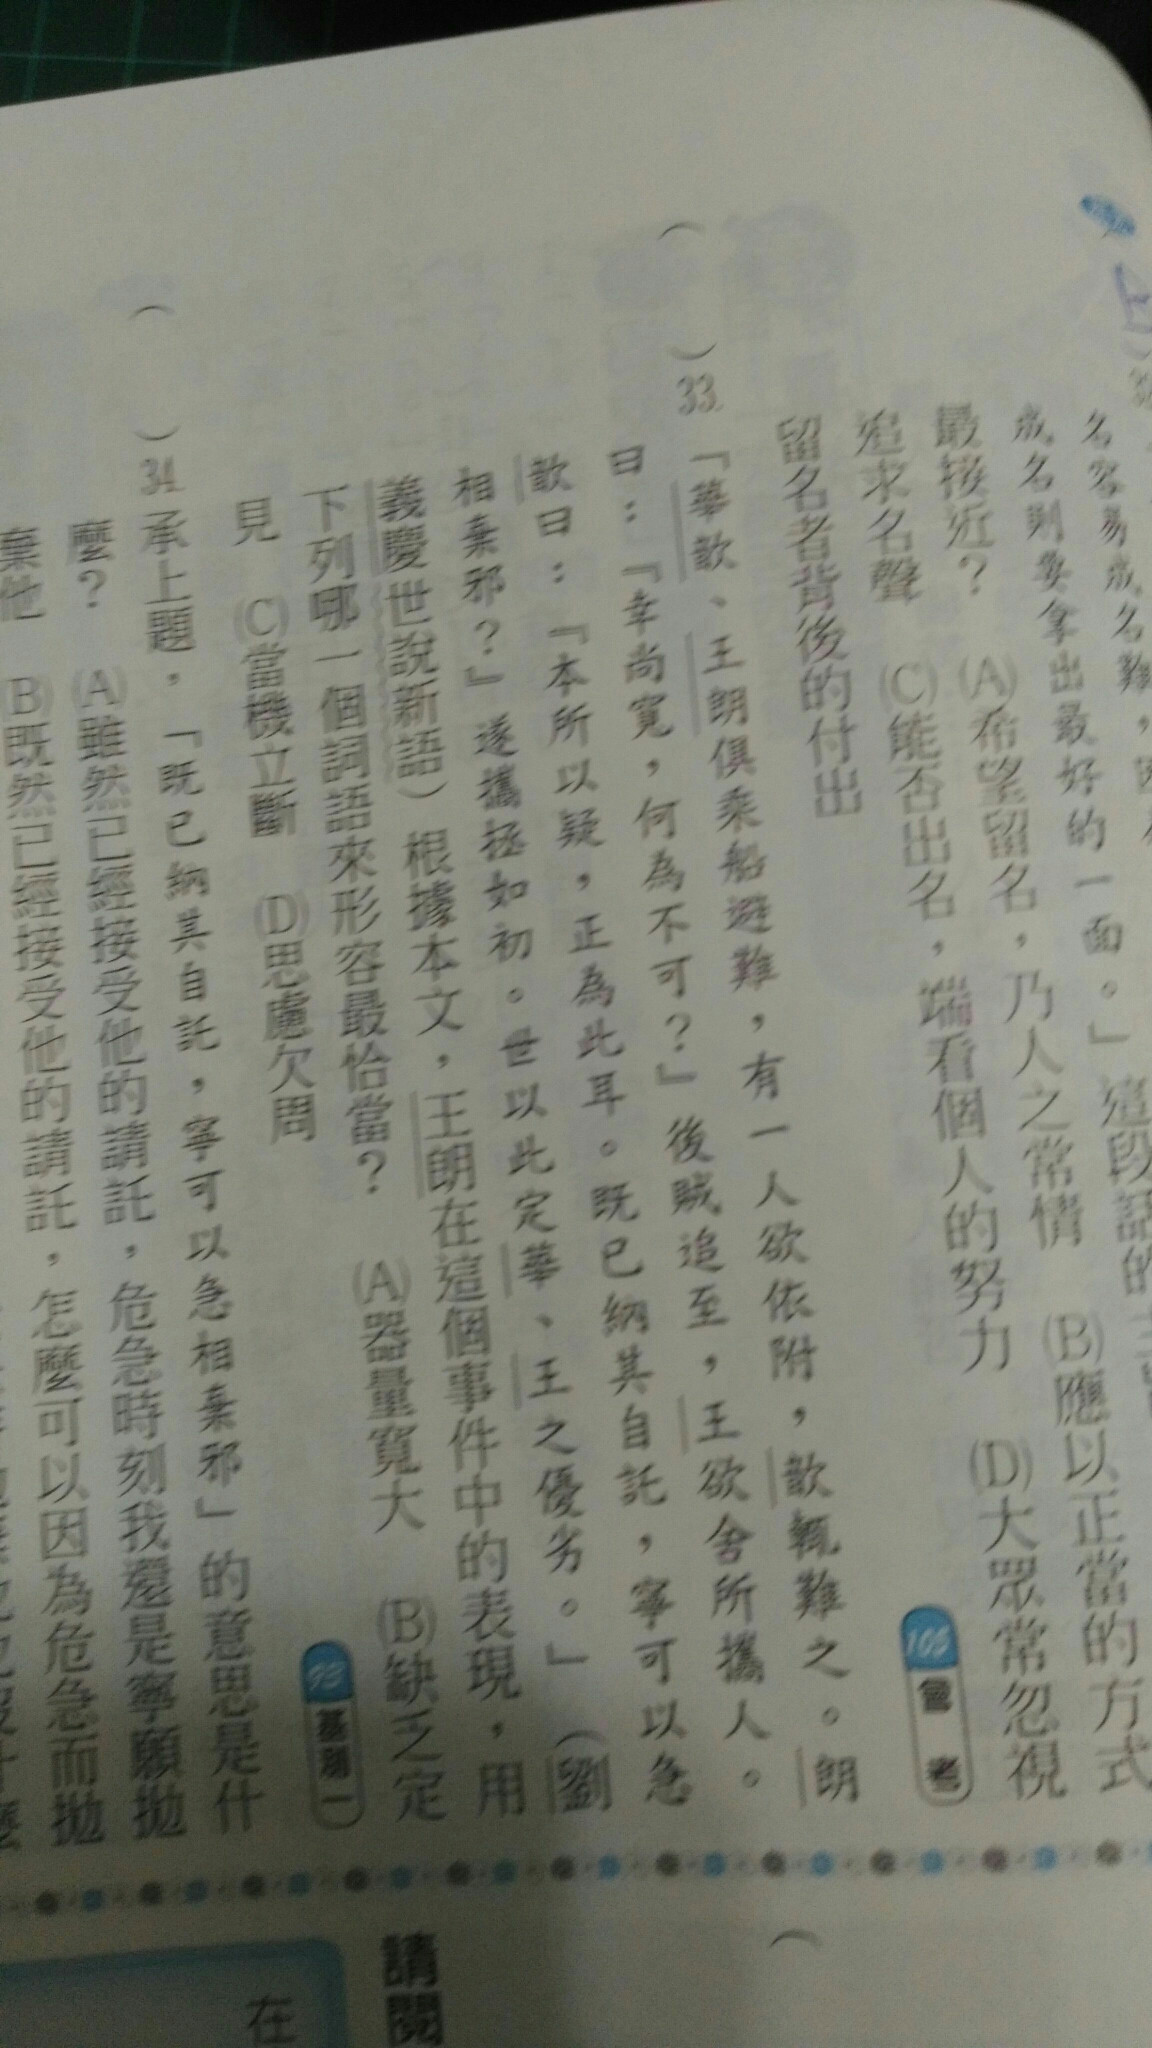 名容易成名難，因
成名則要拿出最好的一面。」這段話的
最接近？ (A)希望留名，乃人之常情 (B)應以正當的方式
追求名聲 (C)能否出名，端看個人的努力 (D)大眾常忽視
留名者背後的付出
105 會考
( )33.「華歆、王朗俱乘船避難，有一人欲依附，歆輒難之。朗
曰：『幸尚寬，何為不可？』後賊追至，王欲舍所攜人。
歆曰：『本所以疑，正為此耳。既已納其自託，寧可以急
相棄邪？』遂攜拯如初。世以此定華、王之優劣。」（劉
義慶世說新語）根據本文，王朗在這個事件中的表現，用
下列哪一個詞語來形容最恰當？ (A)器量寬大 (B)缺乏定
見 (C)當機立斷 (D)思慮欠周
93 基測一
( )34.承上題，「既已納其自託，寧可以急相棄邪」的意思是什
麼？ (A)雖然已經接受他的請託，危急時刻我還是寧願拋
棄他 (B)既然已經接受他的請託，怎麼可以因為危急而拋
請閱
在